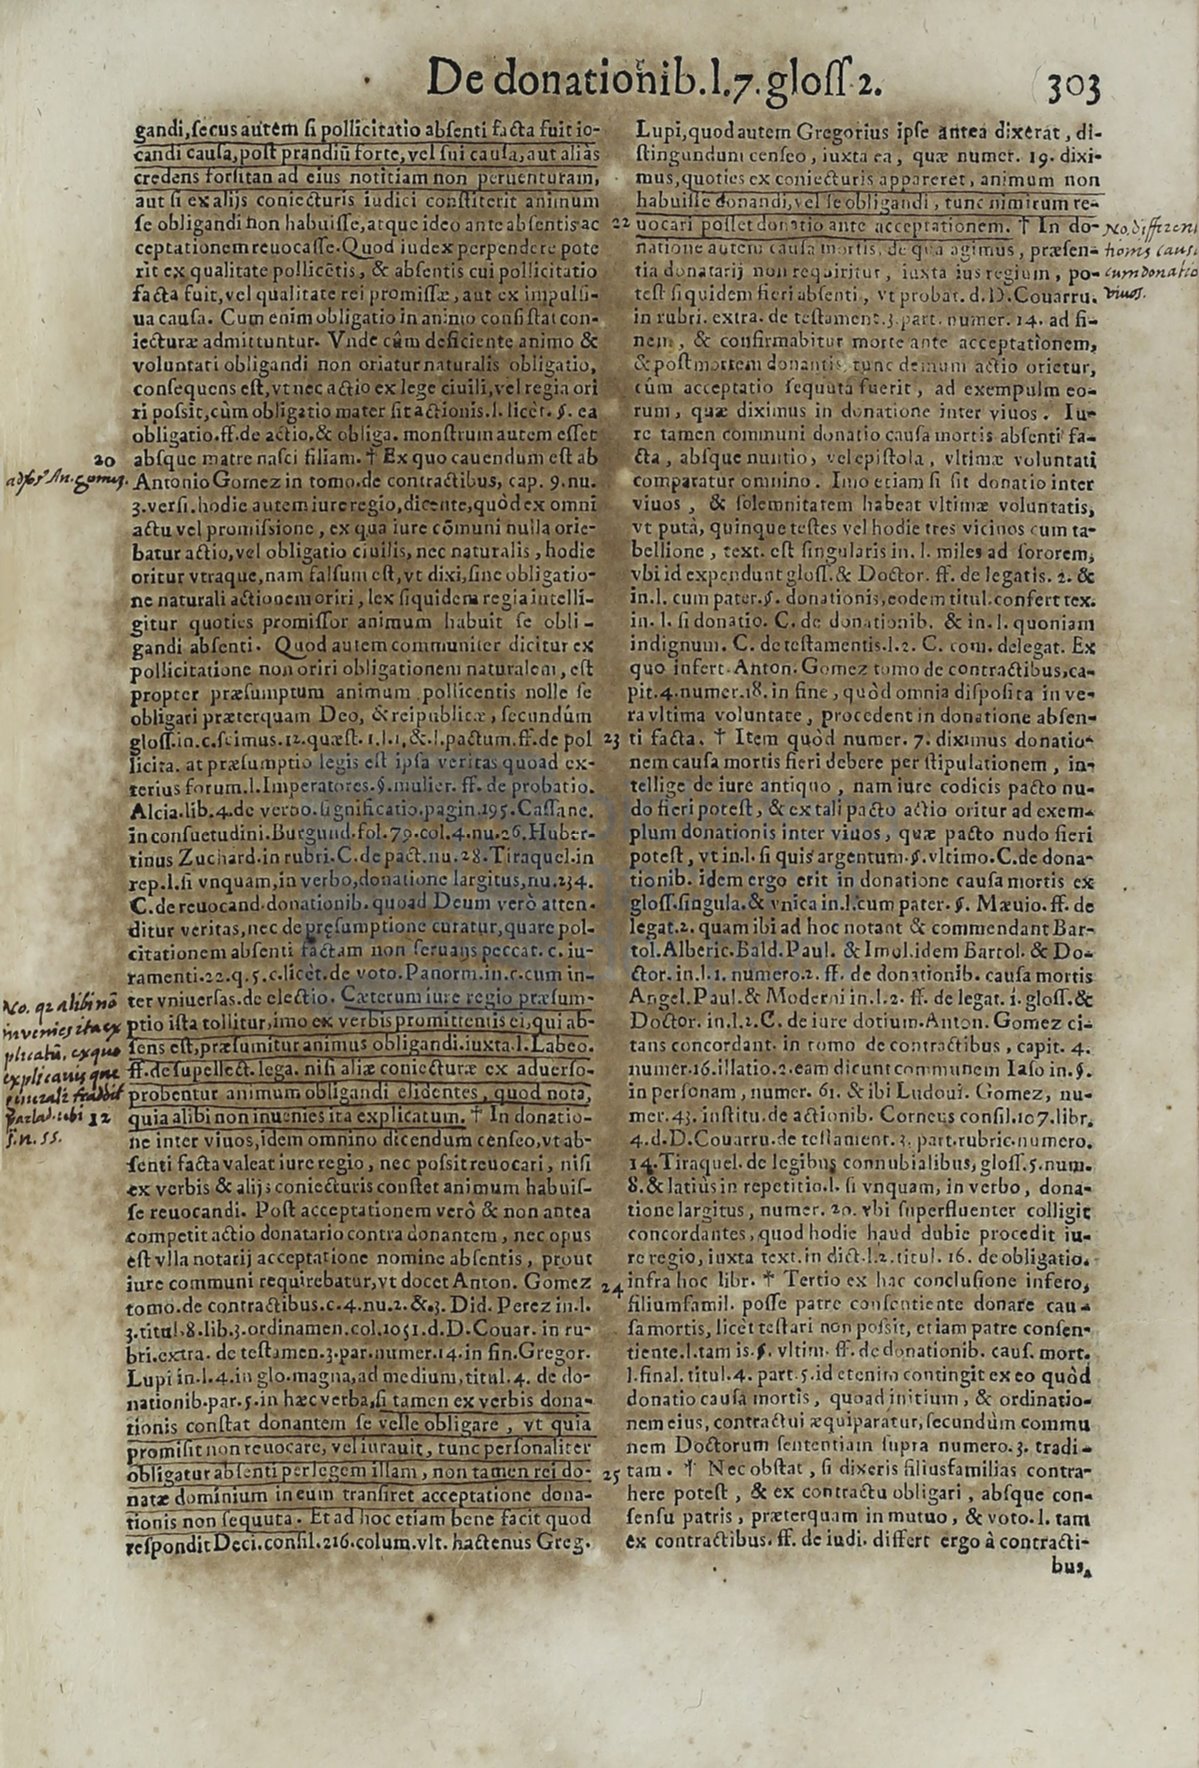 De donationib.l.7.gloſſ 2.
303
gandi,ſecus autẽm ſi pollicitatio abſenti facta fuit io-
candi cauſa,poſt prandiũ forte,vel ſui cauſa,aut aliàs
credens forſitan ad eius notitiam non peruenturam,
aut ſi ex alijs coniecturis iudici conſtiterit animum
ſe obligandi non habuiſſe,atque ideo ante abſentis ac
ceptationem reuocaſſe.Quod iudex perpendere pote
rit ex qualitate pollicẽtis, & abſentis cui pollicitatio
facta fuit,vel qualitate rei promiſſæ, aut ex impulſi-
ua cauſa. Cum enim obligatio in animo conſiſtat con-
iecturæ admittuntur. Vnde cùm deficiente animo &
voluntati obligandi non oriatur naturalis obligatio,
conſequens eſt,vt nec actio ex lege ciuili,vel regia ori
ri poſsit,cùm obligatio mater ſit actionis.l. licèt. §. ea
obligatio.ff.de actio,& obliga. monſtrum autem eſſet
20 abſque matre naſci filiam. † Ex quo cauendum eſt ab
Antonio Gomez in tomo.de contractibus, cap. 9.nu.
3.verſi.hodie autem iure regio,dicente,quòd ex omni
actu vel promiſsione , ex qua iure cõmuni nulla orie-
batur actio,vel obligatio ciuilis, nec naturalis , hodie
oritur vtraque,nam falſum eſt,vt dixi,ſine obligatio-
ne naturali actionem oriri , lex ſiquidem regia intelli-
gitur quoties promiſſor animum habuit ſe obli-
gandi abſenti. Quod autem communiter dicitur ex
pollicitatione non oriri obligationem naturalem, eſt
propter præſumptum animum pollicentis nolle ſe
obligari præterquam Deo, & reipublicæ , ſecundùm
gloſſ.in.c.ſcimus.12.quæſt. 1.l.1,&.l.pactum.ff.de pol
licita. at præſumptio legis eſt ipſa veritas quoad ex-
terius forum.l.Imperatores.§.mulier. ff. de probatio.
Alcia.lib.4.de verbo.ſignificatio.pagin.195.Caſſane.
in conſuetudini.Burgund.fol.79.col.4.nu.26.Huber-
tinus Zuchard.in rubri.C.de pact.nu.28.Tiraquel.in
rep.l.ſi vnquam,in verbo,donatione largitus,nu.234.
C.de reuocand.donationib.quoad Deum verò atten-
ditur veritas,nec de pręſumptione curatur,quare pol-
citationem abſenti factam non ſeruans peccat. c. iu-
ramenti.22.q.5.c.licèt.de voto.Panorm.in.c.cum in-
ter vniuerſas.de electio. Cæterum iure regio præſum-
ptio iſta tollitur,imo ex verbis promittentis ei,qui ab-
ſens eſt,præſumitur animus obligandi.iuxta.l.Labeo.
ff.de ſupellect.lega. niſi aliæ coniecturæ ex aduerſo-
probentur animum obligandi elidentes, quod nota,
12 quia alibi non inuenies ita explicatum. † In donatio-
ne inter viuos,idem omnino dicendum cenſeo,vt ab-
ſenti facta valeat iure regio , nec poſsit reuocari, niſi
ex verbis & alijs coniecturis conſtet animum habuiſ-
ſe reuocandi. Poſt acceptationem verò & non antea
competit actio donatario contra donantem , nec opus
eſt vlla notarij acceptatione nomine abſentis , prout
iure communi requirebatur,vt docet Anton. Gomez
tomo.de contractibus.c.4.nu.2.&.3. Did. Perez in.l.
3.titul.8.lib.3.ordinamen.col.1051.d.D.Couar. in ru-
bri.extra. de teſtamen.3.par.numer.14.in fin.Gregor.
Lupi in.l.4.in glo.magna,ad medium,titul.4. de do-
nationib.par.5.in hæc verba,ſi tamen ex verbis dona-
tionis conſtat donantem ſe velle obligare , vt quia
promiſit non reuocare, vel iurauit, tunc perſonaliter
obligatur abſenti per legem illam , non tamen rei do-
natæ dominium in eum tranſiret acceptatione dona-
tionis non ſequuta. Et ad hoc etiam bene facit quod
reſpondit Deci.conſil.216.colum.vlt. hactenus Greg.
adſos An. gomez.
No. qz alibi nõ
invenies ita ex
plicatũ, ex quo
s.n. 55.
Lupi,quod autem Gregorius ipſe antea dixerat, di-
ſtingundum cenſeo , iuxta ea , quæ numer. 19. dixi-
mus,quoties ex coniecturis appareret, animum non
habuiſſe donandi,vel ſe obligandi , tunc nimirum re-
22 uocari poſſet donatio ante acceptationem. † In do-
natione autem cauſa mortis, de qua agimus , præſen-
tia donatarij non requiritur , iuxta ius regium , po-
teſt ſiquidem fieri abſenti , vt probat. d.D.Couarru.
in rubri. extra. de teſtament.3.part. numer. 14. ad fi-
nem , & confirmabitur morte ante acceptationem,
& poſt mortem donantis, tunc demum actio orietur,
cùm acceptatio ſequuta fuerit , ad exempulm eo-
rum, quæ diximus in donatione inter viuos. Iu-
re tamen communi donatio cauſa mortis abſenti fa-
cta , abſque nuntio, vel epiſtola , vltimæ voluntati
comparatur omnino. Imo etiam ſi ſit donatio inter
viuos , & ſolemnitatem habeat vltimæ voluntatis,
vt putà, quinque teſtes vel hodie tres vicinos cum ta-
bellione , text. eſt ſingularis in. l. miles ad ſororem,
vbi id expendunt gloſſ.& Doctor. ff. de legatis. 2. &
in.l. cum pater.§. donationis,eodem titul.confert tex.
in. l. ſi donatio. C. de donationib. & in.l. quoniam
indignum. C. de teſtamentis.l.2. C. com. delegat. Ex
quo infert. Anton. Gomez tomo de contractibus,ca-
pit.4.numer.18. in fine , quòd omnia diſpoſita in ve-
ra vltima voluntate , procedent in donatione abſen-
23 ti facta. † Item quòd numer. 7. diximus donatio-
nem cauſa mortis fieri debere per ſtipulationem , in-
tellige de iure antiquo , nam iure codicis pacto nu-
do fieri poteſt , & ex tali pacto actio oritur ad exem-
plum donationis inter viuos , quæ pacto nudo fieri
poteſt , vt in.l. ſi quis argentum.§.vltimo.C.de dona-
tionib. idem ergo erit in donatione cauſa mortis ex
gloſſ.ſingula.& vnica in.l.cum pater. §. Mæuio. ff. de
legat.2. quam ibi ad hoc notant & commendant Bar-
tol.Alberic.Bald.Paul. & Imol.idem Bartol. & Do-
ctor. in.l.1. numero.2. ff. de donationib. cauſa mortis
Angel.Paul.& Moderni in.l.2. ff. de legat. i. gloſſ.&
Doctor. in.l.2.C. de iure dotium.Anton. Gomez ci-
tans concordant. in tomo de contractibus , capit. 4.
numer.16.illatio.2.eam dicunt communem Iaſo in.§.
in perſonam, numer. 61. & ibi Ludoui. Gomez, nu-
mer.43. inſtitu.de actionib. Corneus conſil.107.libr.
4.d.D.Couarru.de teſtament.3.part.rubric.numero.
14.Tiraquel. de legibus connubialibus, gloſſ.5.num.
8.& latiùs in repetitio.l. ſi vnquam, in verbo , dona-
tione largitus , numer. 20. vbi ſuperfluenter colligit
concordantes, quod hodie haud dubie procedit iu-
re regio, iuxta text.in dict.l.2.titul. 16. de obligatio.
24 infra hoc libr. † Tertio ex hac concluſione infero,
filiumfamil. poſſe patre conſentiente donare cau-
ſa mortis, licèt teſtari non poſsit, etiam patre conſen-
tiente.l.tam is.§. vltim. ff. de donationib. cauſ. mort.
l.final. titul.4. part.5.id etenim contingit ex eo quòd
donatio cauſa mortis, quoad initium , & ordinatio-
nem eius, contractui æquiparatur, ſecundùm commu
nem Doctorum ſententiam ſupra numero.3. tradi-
25 tam. † Nec obſtat , ſi dixeris filiusfamilias contra-
here poteſt , & ex contractu obligari , abſque con-
ſenſu patris , præterquam in mutuo , & voto.l. tam
ex contractibus. ff. de iudi. differt ergo à contracti-
bus,
No. differen
tioms causa
cum donatio
vivos.